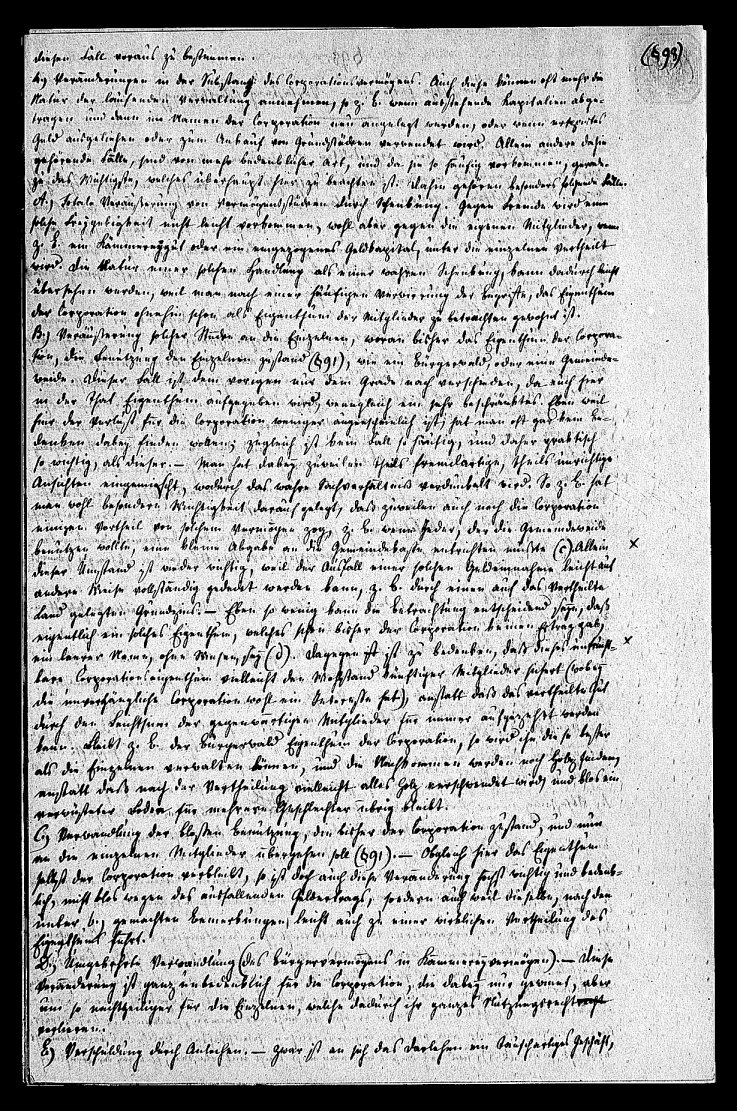 (§98)
diesen Fall voraus zu bestimmen.
4.) Veränderungen in der Substanz des Corporationsvermögens. Auch diese können oft mehr die
Natur der laufenden Verwaltung annehmen, so z. B. wenn ausstehende Kapitalien abge-
tragen und dann im Namen der Corporation neu angelegt werden, oder wenn erspartes
Geld ausgeliehen oder zum Ankauf von Grundstücken verwendet wird. Allein andere dahin
gehörende Fälle, sind von mehr bedenklicher Art, und da sie so häufig vorkommen, gerade
zu das Wichtigste, welches überhaupt hier zu beachten ist. Dahin gehören besonders folgende Fälle.
A.) Totale Veräußerung von Vermögensstücken durch Schenkung. Gegen Fremde wird eine
solche Freygebigkeit nicht leicht vorkommen, wohl aber gegen die eigenen Mitglieder, wenn
z. B. ein Kämmereygut oder ein eingezogenes Geldkapital, unter die einzelnen vertheilt
wird. Die Natur einer solchen Handlung als einer wahren Schenkung, kann dadurch leicht
übersehen werden, weil man nach einer häufigen Verwirrung der Begriffe, das Eigenthum
der Corporation ohnehin schon als Eigenthum der Mitglieder zu betrachten gewohnt ist.
B.) Veräußerung solcher Stücke an die Einzelnen, woran bisher das Eigenthum der Corpora-
tion, die Benutzung den Einzelnen zustand (§91), wie ein Bürgerwald, oder eine Gemeinde-
weide. Dieser Fall ist dem vorigen nur dem Grade nach verschieden, da auch hier
in der That Eigenthum aufgegeben wird, wenngleich ein sehr beschränktes. Eben weil
hier der Verlust für die Corporation weniger augenscheinlich ist, hat man oft gar kein Be-
denken dabey finden wollen; zugleich ist kein Fall so häufig, und daher praktisch
so wichtig, als dieser. — Man hat dabey zuweilen theils fremdartige, theils unrichtige
Ansichten eingemischt, wodurch das wahre Sachverhältniß verdunkelt wird. So z. B. hat
man wohl besondere Wichtigkeit darauf gelegt, daß zuweilen auch noch die Corporation
einigen Vortheil von solchem Vermögen zog, z. B. wenn Jeder, der die Gemeindeweide
benutzen wollte, eine kleine Abgabe an die Gemeindekasse entrichten mußte (c). Allein x
dieser Umstand ist weder wichtig, weil der Ausfall einer solchen Geldeinnahme leicht auf
andere Weise vollständig gedeckt werden kann, z. B. durch einen auf das vertheilte
Land gelegten Grundzins. — Eben so wenig kann die Betrachtung entscheidend seyn, daß
eigentlich ein solches Eigenthum, welches schon bisher der Corporation keinen Ertrag gab,
ein leerer Name, ohne Wesen, sey (d). Dagegen ist zu bedenken, daß dieses x
Corporationseigenthum vielleicht den Wohlstand künftiger Mitglieder sichert (wobey
die unvergängliche Corporation wohl ein Interesse hat), anstatt daß das vertheilte Gut
durch den Leichtsinn der gegenwärtigen Mitglieder für immer aufgezehrt werden
kann. Bleibt z. B. der Bürgerwald Eigenthum der Corporation, so wird ihn diese besser
als die Einzelnen verwalten können, und die Nachkommen werden noch Holz finden,
anstatt daß nach der Vertheilung vielleicht alles Holz verschwendet wird, und blos ein
verwüsteter Boden für mehrere Geschlechter übrig bleibt.
C.) Verwandlung der bloßen Benutzung, die bisher der Corporation zustand, und nun
an die einzelnen Mitglieder übergehen soll (§91). — Obgleich hier das Eigenthum
selbst der Corporation verbleibt, so ist doch auch diese Veränderung höchst wichtig und bedenk-
lich, nicht blos wegen des ausfallenden Geldertrags, sondern auch weil dieselbe, nach den
unter b, gemachten Bemerkungen, leicht auch zu einer wirklichen Vertheilung des
Eigenthums führt.
D.) Umgekehrte Verwandlung (des Bürgervermögens in Kämmereyvermögen). — Diese
Veränderung ist ganz unbedenklich für die Corporation, die dabey nur gewinnt, aber
um so nachtheiliger für die Einzelnen, welche dadurch ihr ganzes Nutzungsrecht
verlieren.
E.) Verschuldung durch Anleihen. — Zwar ist an sich das Darlehen ein tauschartiges Geschäft,